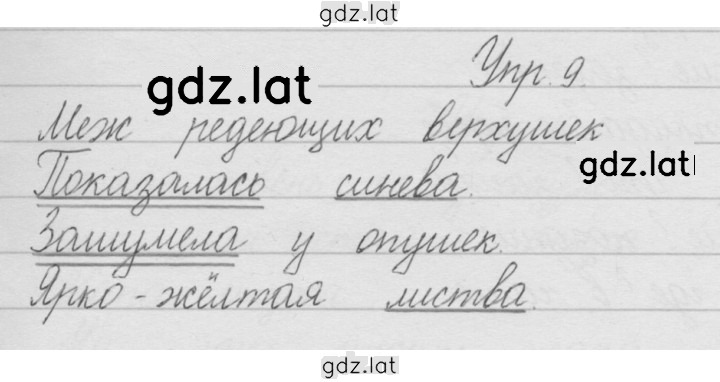 gdz.lat
Упр. 9.
gdz.lat
Меж редеющих верхушек
gdz.lat
Показалась синева.
Зашумела у опушек
Ярко-жёлтая листва.
gdz.lat